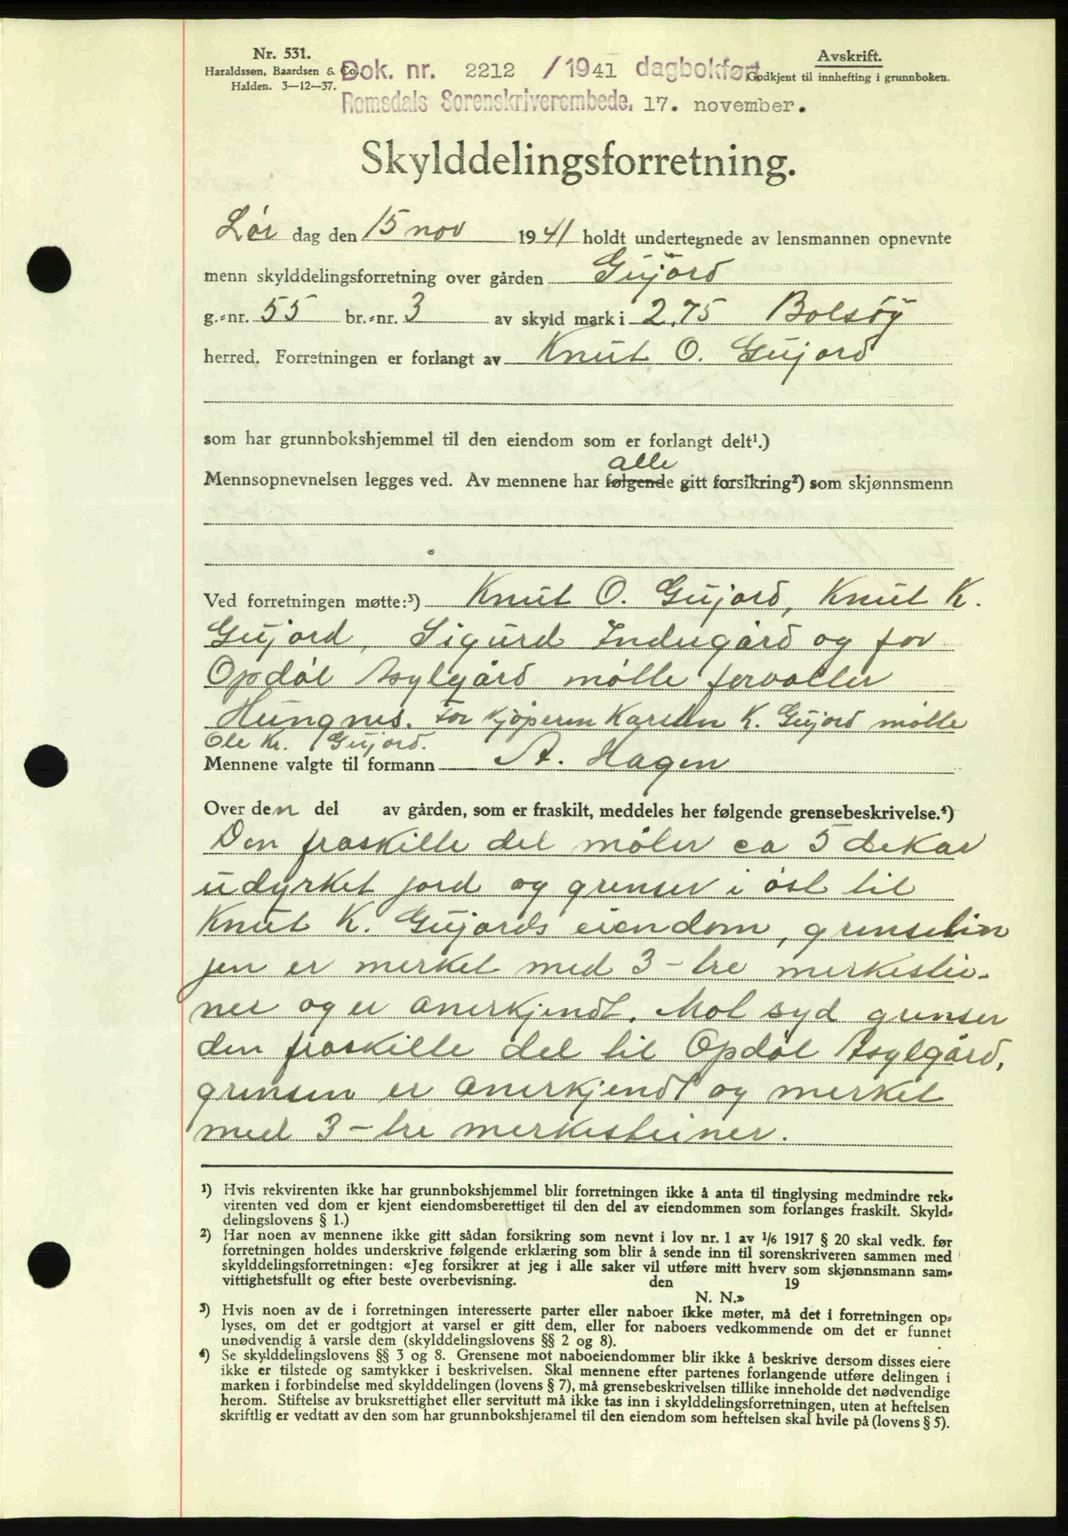 Nr. 531.
Haraldssen, Baardsen & Co.
Halden. 3—12—37.
Dok. nr. 2212 /1941 dagbokført
Romsdals Sorenskriverembede, 17. november.
Avskrift.
Godkjent til innhefting i grunnboken.
Skylddelingsforretning.
Lør dag den 15 nov 1941 holdt undertegnede av lensmannen opnevnte
menn skylddelingsforretning over gården Gujord
g.-nr. 55 br.-nr. 3 av skyld mark i 2,75 Bolsøy
herred. Forretningen er forlangt av Knut O. Gujord
som har grunnbokshjemmel til den eiendom som er forlangt delt¹.)
alle
Mennsopnevnelsen legges ved. Av mennene har følgende gitt forsikring²) som skjønnsmenn
Ved forretningen møtte:³) Knut O. Gujord, Knut K.
Gujord, Sigurd Indregård og for
Opdøl Asylgård møtte forvalter
Hungnes. For kjøperen Karsten K. Gujord møtte
Ole Kr. Gujord.
Mennene valgte til formann A. Hagen
Over den del av gården, som er fraskilt, meddeles her følgende grensebeskrivelse.⁴)
Den fraskilte del måler ca 5 dekar
udyrket jord og grenser i øst til
Knut K. Gujords eiendom, grenselin
jen er merket med 3 - tre merkestei-
ner og er anerkjendt. Mot syd grenser
den fraskilte del til Opdøl Asylgård,
grensen er anerkjendt og merket
med 3 - tre merkesteiner.
¹) Hvis rekvirenten ikke har grunnbokshjemmel blir forretningen ikke å anta til tinglysing medmindre rek-
virenten ved dom er kjent eiendomsberettiget til den del av eiendommen som forlanges fraskilt. Skyld-
delingslovens § 1.)
²) Har noen av mennene ikke gitt sådan forsikring som nevnt i lov nr. 1 av 1/6 1917 § 20 skal vedk. før
forretningen holdes underskrive følgende erklæring som blir å sende inn til sorenskriveren sammen med
skylddelingsforretningen: «Jeg forsikrer at jeg i alle saker vil utføre mitt hverv som skjønnsmann sam-
vittighetsfullt og efter beste overbevisning. den 19
N. N.»
³) Hvis noen av de i forretningen interesserte parter eller naboer ikke møter, må det i forretningen op-
lyses, om det er godtgjort at varsel er gitt dem, eller for naboers vedkommende om det er funnet
unødvendig å varsle dem (skylddelingslovens §§ 2 og 8).
⁴) Se skylddelingslovens §§ 3 og 8. Grensene mot naboeiendommer blir ikke å beskrive dersom disses eiere
ikke er tilstede og samtykker i beskrivelsen. Skal mennene efter partenes forlangende utføre delingen i
marken i forbindelse med skylddelingen (lovens § 7), må grensebeskrivelsen tillike inneholde det nødvendige
herom. Stiftelse av bruksrettighet eller servitutt må ikke tas inn i skylddelingsforretningen, uten at heftelsen
skriftlig er vedtatt av den som har grunnbokshjemmel til den eiendom som heftelsen skal hvile på (lovens § 5).